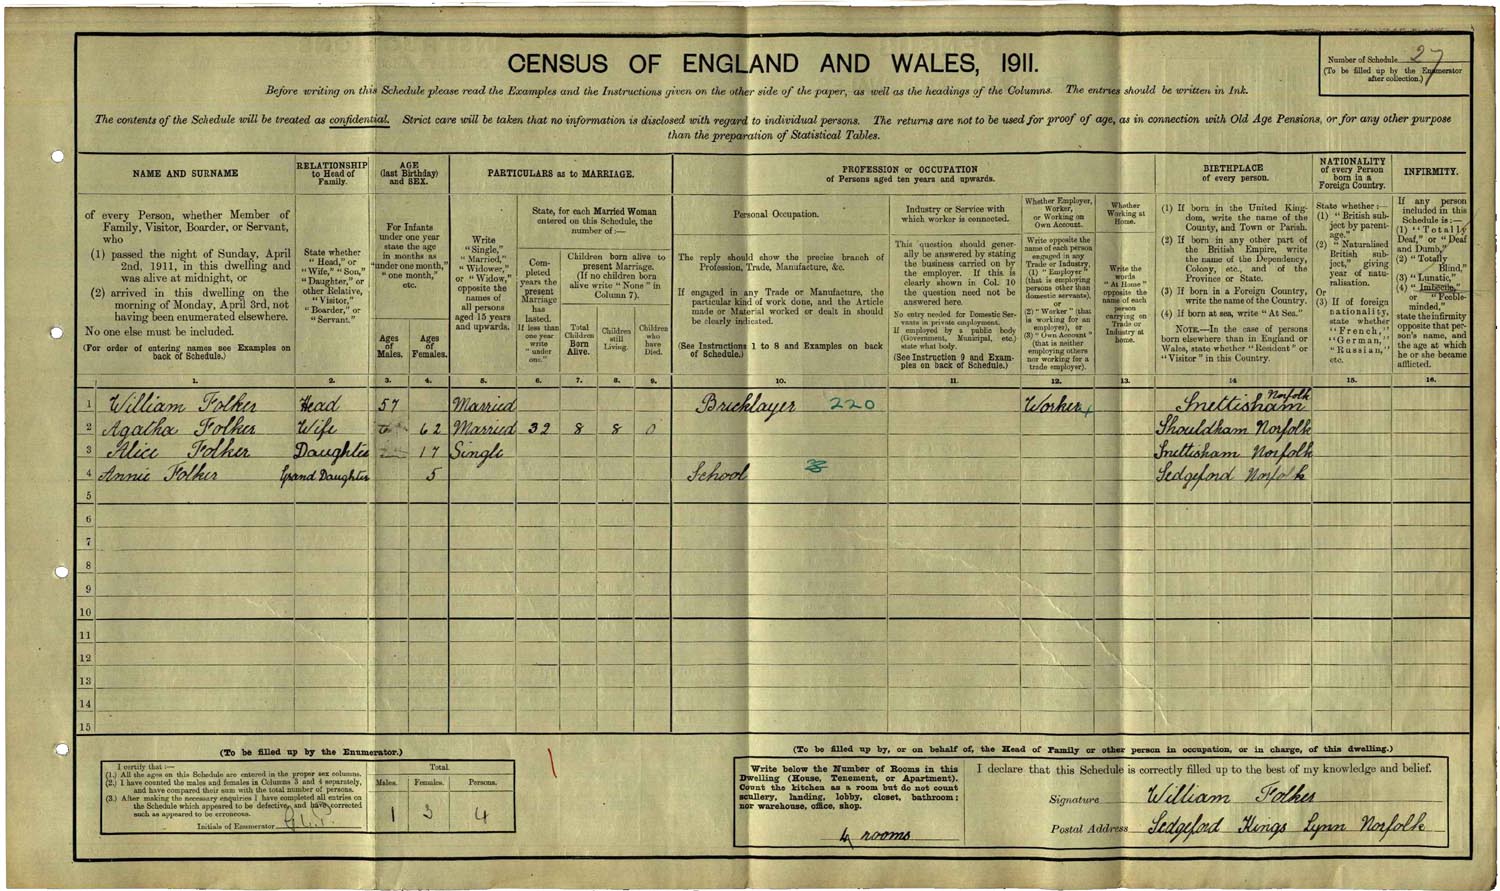 CENSUS OF ENGLAND AND WALES, 1911.
Number of Schedule 27
(To be filled up by the Enumerator
after collection.)
Before writing on this Schedule please read the Examples and the Instructions given on the other side of the paper, as well as the headings of the Columns. The entries should be written in Ink.
The contents of the Schedule will be treated as confidential. Strict care will be taken that no information is disclosed with regard to individual persons. The returns are not to be used for proof of age, as in connection with Old Age Pensions, or for any other purpose
than the preparation of Statistical Tables.
NAME AND SURNAME
of every Person, whether Member of
Family, Visitor, Boarder, or Servant,
who
(1) passed the night of Sunday, April
2nd, 1911, in this dwelling and
was alive at midnight, or
(2) arrived in this dwelling on the
morning of Monday, April 3rd, not
having been enumerated elsewhere.
No one else must be included.
(For order of entering names see Examples on
back of Schedule.)
RELATIONSHIP
to Head of
Family.
State whether
"Head," or
"Wife," "Son,"
"Daughter," or
other Relative,
"Visitor,"
"Boarder," or
"Servant."
AGE
(last Birthday)
and SEX.
For Infants
under one year
state the age
in months as
"under one month,"
"one month,"
etc.
Ages
of
Males.
Ages
of
Females.
PARTICULARS as to MARRIAGE.
Write
"Single,"
"Married,"
"Widower,"
or "Widow,"
opposite the
names of
all persons
aged 15 years
and upwards.
State, for each Married Woman
entered on this Schedule, the
number of:—
Com-
pleted
years the
present
Marriage
has
lasted.
If less than
one year
write
"under
one."
Children born alive to
present Marriage.
(If no children born
alive write "None" in
Column 7).
Total
Children
Born
Alive.
Children
still
Living.
Children
who
have
Died.
PROFESSION or OCCUPATION
of Persons aged ten years and upwards.
Personal Occupation.
The reply should show the precise branch of
Profession, Trade, Manufacture, &c.
If engaged in any Trade or Manufacture, the
particular kind of work done, and the Article
made or Material worked or dealt in should
be clearly indicated.
(See Instructions 1 to 8 and Examples on back
of Schedule.)
Industry or Service with
which worker is connected.
This question should gener-
ally be answered by stating
the business carried on by
the employer. If this is
clearly shown in Col. 10
the question need not be
answered here.
No entry needed for Domestic Ser-
vants in private employment.
If employed by a public body
(Government, Municipal, etc.)
state what body.
(See Instruction 9 and Exam-
ples on back of Schedule.)
Whether Employer,
Worker,
or Working on
Own Account.
Write opposite the
name of each person
engaged in any
Trade or Industry,
(1) "Employer"
(that is employing
persons other than
domestic servants),
or
(2) "Worker" (that
is working for an
employer), or
(3) "Own Account"
(that is neither
employing others
nor working for a
trade employer).
Whether
Working at
Home.
Write the
words
"At Home"
opposite the
name of each
person
carrying on
Trade or
Industry at
home.
BIRTHPLACE
of every person.
(1) If born in the United King-
dom, write the name of the
County, and Town or Parish.
(2) If born in any other part of
the British Empire, write
the name of the Dependency,
Colony, etc., and of the
Province or State.
(3) If born in a Foreign Country,
write the name of the Country.
(4) If born at sea, write "At Sea."
NOTE.—In the case of persons
born elsewhere than in England or
Wales, state whether "Resident" or
"Visitor" in this Country.
NATIONALITY
of every Person
born in a
Foreign Country.
State whether:—
(1) "British sub-
ject by parent-
age,"
(2) "Naturalised
British sub-
ject," giving
year of natu-
ralisation.
Or
(3) If of foreign
nationality,
state whether
"French,"
"German,"
"Russian,"
etc.
INFIRMITY.
If any person
included in this
Schedule is:—
(1) "Totally
Deaf," or "Deaf
and Dumb,"
(2) "Totally
Blind,"
(3) "Lunatic,"
(4) "Imbecile,"
or "Feeble-
minded,"
state the infirmity
opposite that per-
son's name, and
the age at which
he or she became
afflicted.
1. 2. 3. 4. 5. 6. 7. 8. 9. 10. 11. 12. 13. 14 15. 16.
1 William Folker Head 57 Married Bricklayer 220 Worker Snettisham Norfolk
2 Agatha Folker Wife 62 Married 32 8 8 0 Shouldham Norfolk
3 Alice Folker Daughter 17 Single Snettisham Norfolk
4 Annie Folker Grand Daughter 5 School Sedgeford Norfolk
5
6
7
8
9
10
11
12
13
14
15
(To be filled up by the Enumerator.)
I certify that:—
(1.) All the ages on this Schedule are entered in the proper sex columns.
(2.) I have counted the males and females in Columns 3 and 4 separately,
and have compared their sum with the total number of persons.
(3.) After making the necessary enquiries I have completed all entries on
the Schedule which appeared to be defective, and have corrected
such as appeared to be erroneous.
Initials of Enumerator
Total.
Males. Females. Persons.
1 3 4
(To be filled up by, or on behalf of, the Head of Family or other person in occupation, or in charge, of this dwelling.)
Write below the Number of Rooms in this
Dwelling (House, Tenement, or Apartment).
Count the kitchen as a room but do not count
scullery, landing, lobby, closet, bathroom;
nor warehouse, office, shop.
4 rooms
I declare that this Schedule is correctly filled up to the best of my knowledge and belief.
Signature William Folker
Postal Address Sedgeford Kings Lynn Norfolk